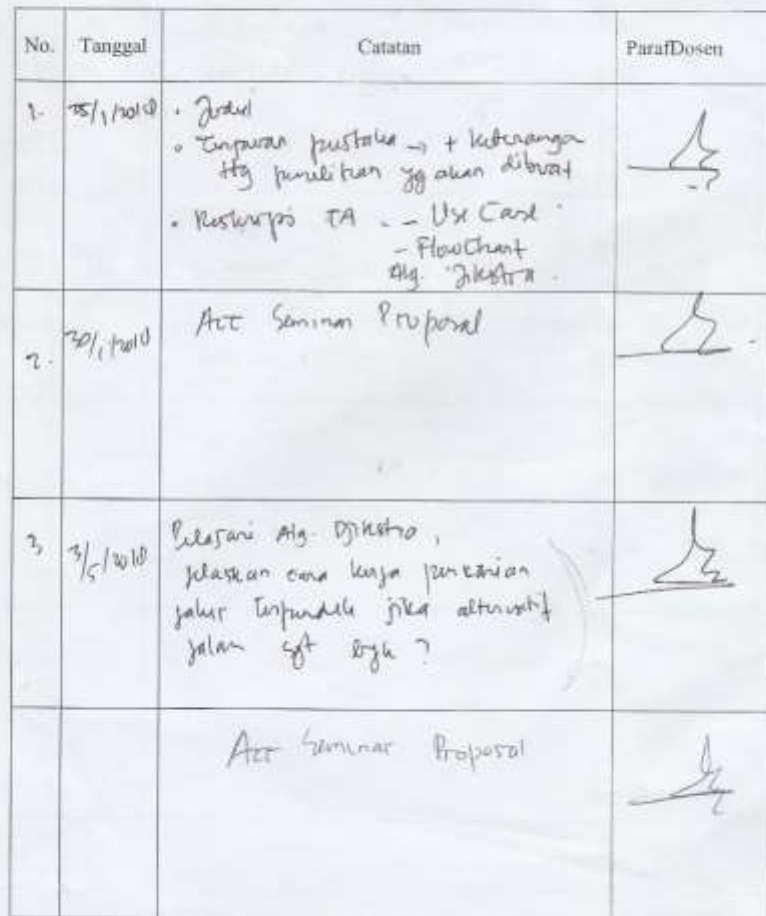 No. Tanggal Catatan ParafDosen
1. 25/1/2018 • Judul
• Tinjauan pustaka → + keterangan
ttg penelitian yg akan dibuat
• Deskripsi TA - Use Case
- FlowChart
Alg. Jikstra.
2. 30/1/2018 Acc Seminar Proposal
3 3/5/2018 Pelajari Alg. Djikstra,
jelaskan cara kerja pencarian
jalur terpendek jika alternatif
jalan sgt byk ?
Acc Seminar Proposal